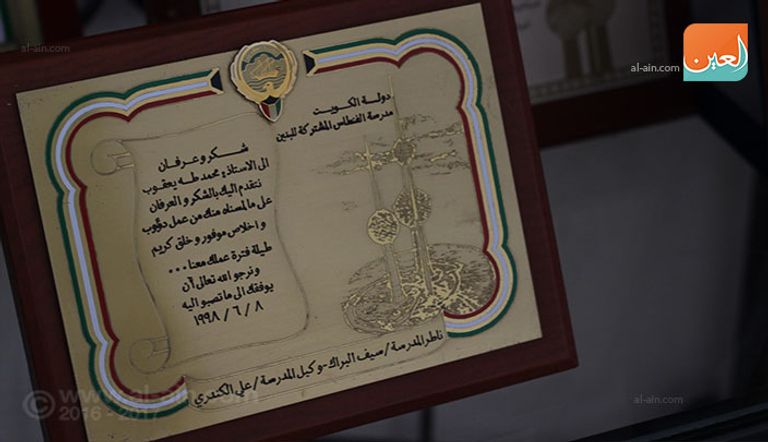 al-ain.com
al-ain.com
العين
دولة الكويت
مدرسة الفنطاس المشتركة للبنين
شكر وعرفان
الى الاستاذ، محمد طه يعقوب
نتقدم اليك بالشكر و العرفان
على ما لمسناه منك من عمل دؤوب
و اخلاص موفور و خلق كريم
طيلة فترة عملك معنا ...
و نرجو الله تعالى أن
يوفقك الى ما تصبو اليه
١٩٩٨ / ٦ / ٨
ناظر المدرسة / سيف البراك - وكيل المدرسة / علي الكندري
© www.al-ain.com
2016 - 2017
al-ain.com